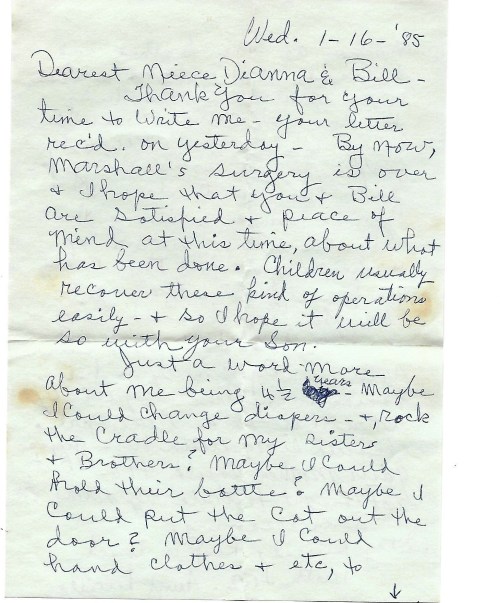 Wed. 1-16-'85
Dearest Niece Dianna & Bill -
Thank you for your
time to write me - your letter
rec'd. on yesterday - By now,
Marshall's surgery is over
& I hope that you & Bill
are satisfied & peace of
mind at this time, about what
has been done. Children usually
recover these kind of operations
easily - & so I hope it will be
so with your Son.
Just a word more
about me being 4 1/2 years - Maybe
I could change diapers - &, rock
the cradle for my sisters
& Brothers? Maybe I could
hold their bottle? Maybe I
could put the cat out the
door? Maybe I could
hand clothes & etc, to
↓